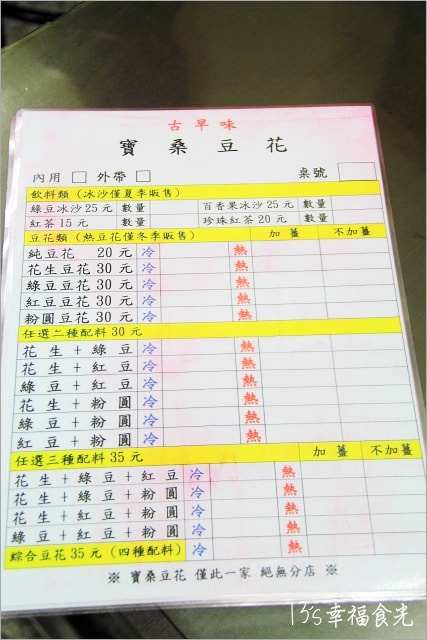 古早味
寶桑豆花
內用 □ 外帶 □ 桌號 □
飲料類（冰沙僅夏季販售）
綠豆冰沙25元 數量 百香果冰沙25元 數量
紅茶15元 數量 珍珠紅茶20元 數量
豆花類（熱豆花僅冬季販售） 加薑 不加薑
純豆花 20元 冷 熱
花生豆花30元 冷 熱
綠豆豆花30元 冷 熱
紅豆豆花30元 冷 熱
粉圓豆花30元 冷 熱
任選二種配料30元
花生+綠豆 冷 熱
花生+紅豆 冷 熱
綠豆+紅豆 冷 熱
花生+粉圓 冷 熱
綠豆+粉圓 冷 熱
紅豆+粉圓 冷 熱
任選三種配料35元 加薑 不加薑
花生+綠豆+紅豆 冷 熱
花生+綠豆+粉圓 冷 熱
花生+紅豆+粉圓 冷 熱
綠豆+紅豆+粉圓 冷 熱
綜合豆花35元（四種配料） 冷 熱
※ 寶桑豆花 僅此一家 絕無分店 ※
1%幸福食光